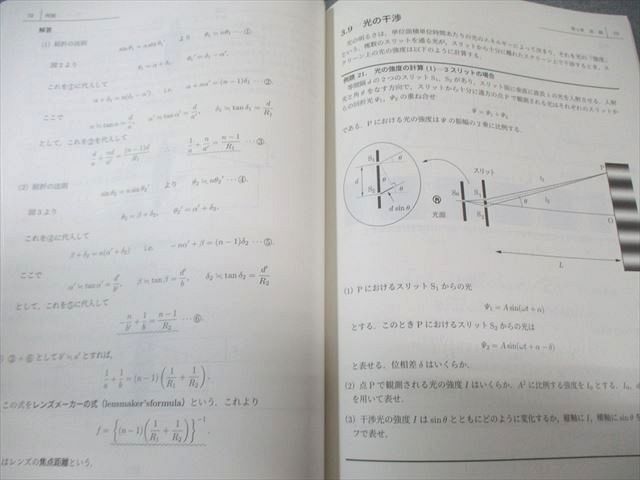 解答
(1) 屈折の法則
sinθ₁ = n sinθ₁′ より θ₁ ≒ nθ₁′ ⋯①.
図2より
θ₁ = α + δ₁, θ₁′ = δ₁ − α′.
これを①に代入して
α + δ₁ = n(δ₁ − α′) i.e. α + nα′ = (n−1)δ₁ ⋯②.
ここで
α ≒ tanα = d/a, α′ ≒ tanα′ = d/a′, δ₁ ≒ tanδ₁ = d/R₁
として,これを②を代入して
d/a + nd/a′ = (n−1)d/R₁ ∴ 1/a + n/a′ = (n−1)/R₁ ⋯③.
(2) 屈折の法則
sinθ₂ = n sinθ₂′ より θ₂ ≒ nθ₂′ ⋯④.
図3より
θ₂ = β + δ₂, θ₂′ = α′ + δ₂.
これを④に代入して
β + δ₂ = n(α′ + δ₂) i.e. −nα′ + β = (n−1)δ₂ ⋯⑤.
ここで
α′ ≒ tanα′ = d′/b′, β ≒ tanβ = d′/b, δ₂ ≒ tanδ₂ = d′/R₂
として,これを⑤に代入して
−n/b′ + 1/b = (n−1)/R₂ ⋯⑥.
③+⑥として
とすれば,
1/a + 1/b = (n−1)(1/R₁ + 1/R₂).
この式をレンズメーカーの式(lensmaker'sformula)という.これより
f = {(n−1)(1/R₁ + 1/R₂)}⁻¹.
はレンズの焦点距離という.
3.9 光の干渉
光の明るさは,単位面積単位時間あたりの光のエネルギーによって決まり,それを光の「強度」
という.複数のスリットを通る光が,スリットから十分に離れたスクリーン上で干渉するとき,ス
クリーン上の光の強度は以下のように計算する.
例題 21. 光の強度の計算(1)―2スリットの場合
等間隔 d の2つのスリット S₁, S₂ があり,スリット面に垂直に波長 λ の光を入射させる.入射
光と角 θ をなす方向で,スリットから十分に遠方の点Pで観測される光はそれぞれのスリットか
らの回折光 Ψ₁, Ψ₂ の重ね合せ
Ψ = Ψ₁ + Ψ₂
である.Pにおける光の強度は Ψ の振幅の2乗に比例する.
S₁
θ
d
S₂
θ
d sinθ
スリット
S₀
光源
S₁
S₂
θ
l₁
l₂
P
O
L
(1) PにおけるスリットS₁からの光
Ψ₁ = A sin(ωt + α)
とする.このときPにおけるスリットS₂からの光は
Ψ₂ = A sin(ωt + α − δ)
と表せる.位相差 δ はいくらか.
(2) 点Pで観測される光の強度 I はいくらか.A² に比例する強度を I₀ とする.I₀,
を用いて表せ.
(3) 干渉光の強度 I は sinθ とともにどのように変化するか,縦軸に I,横軸に sinθ を
フで表せ.